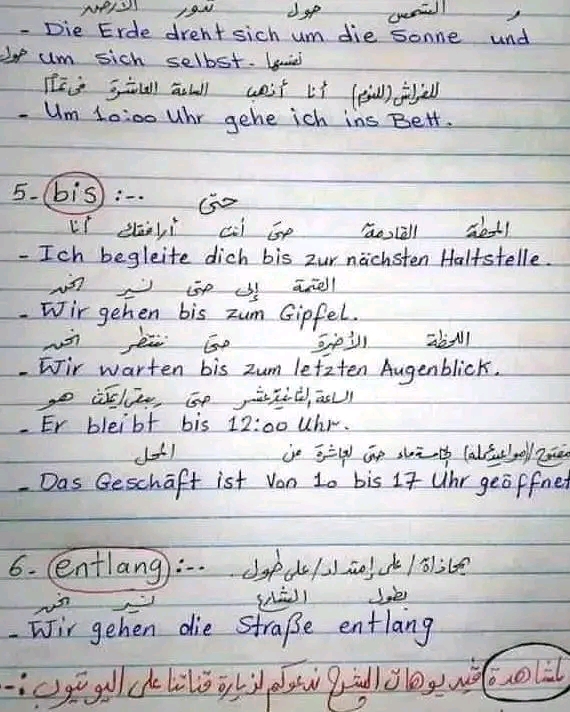 و الشمس حول تدور الأرض
- Die Erde dreht sich um die Sonne und
um sich selbst. نفسها حول
للفراش (للنوم) أنا أذهب الساعة العاشرة في تمام
- Um 10:00 Uhr gehe ich ins Bett.
5- bis :-.. حتى
المحطة القادمة حتى أنت أرافقك أنا
- Ich begleite dich bis zur nächsten Haltstelle.
القمة إلى حتى نسير نحن
- Wir gehen bis zum Gipfel.
اللحظة الأخيرة حتى ننتظر نحن
- Wir warten bis zum letzten Augenblick.
الساعة الثانية عشر حتى يبقى/يمكث هو
- Er bleibt bis 12:00 Uhr.
مفتوح (مواعيد عمله) حتى العاشرة من المحل
- Das Geschäft ist Von 10 bis 17 Uhr geöffnet
6- entlang :-.. بمحاذاة / على إمتداد / على طول
بطول الشارع نسير نحن
- Wir gehen die Straße entlang
لمشاهدة فيديوهات الشرح ندعوكم لزيارة قناتنا على اليوتيوب :-